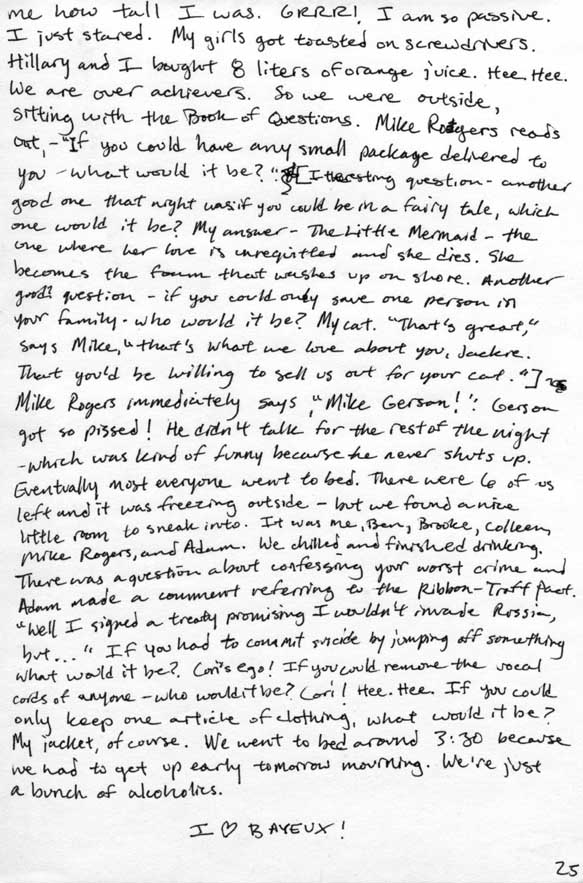 me how tall I was. GRRR! I am so passive.
I just stared. My girls got toasted on screwdrivers.
Hillary and I bought 8 liters of orange juice. Hee. Hee.
We are over achievers. So we were outside,
sitting with the Book of Questions. Mike Rogers reads
out, - "If you could have any small package delivered to
you - what would it be?" [Interesting question - another
good one that night was if you could be in a fairy tale, which
one would it be? My answer - The Little Mermaid - the
one where her love is unrequitted and she dies. She
becomes the foam that washes up on shore. Another
good question - if you could only save one person in
your family - who would it be? My cat. "That's great,"
says Mike, "that's what we love about you, Jackie.
That you'd be willing to sell us out for your cat."]
Mike Rogers immediately says, "Mike Gerson!" Gerson
got so pissed! He didn't talk for the rest of the night
- which was kind of funny because he never shuts up.
Eventually most everyone went to bed. There were 6 of us
left and it was freezing outside - but we found a nice
little room to sneak into. It was me, Ben, Brooke, Colleen,
Mike Rogers, and Adam. We chilled and finished drinking.
There was a question about confessing your worst crime and
Adam made a comment referring to the Ribbon-Troff Pact.
"Well I signed a treaty promising I wouldn't invade Russia,
but..." If you had to commit suicide by jumping off something
what would it be? Cori's ego! If you could remove the vocal
cords of anyone - who would it be? Cori! Hee. Hee. If you could
only keep one article of clothing, what would it be?
My jacket, of course. We went to bed around 3:30 because
we had to get up early tomorrow mourning. We're just
a bunch of alcoholics.
I ♡ BAYEUX!
25